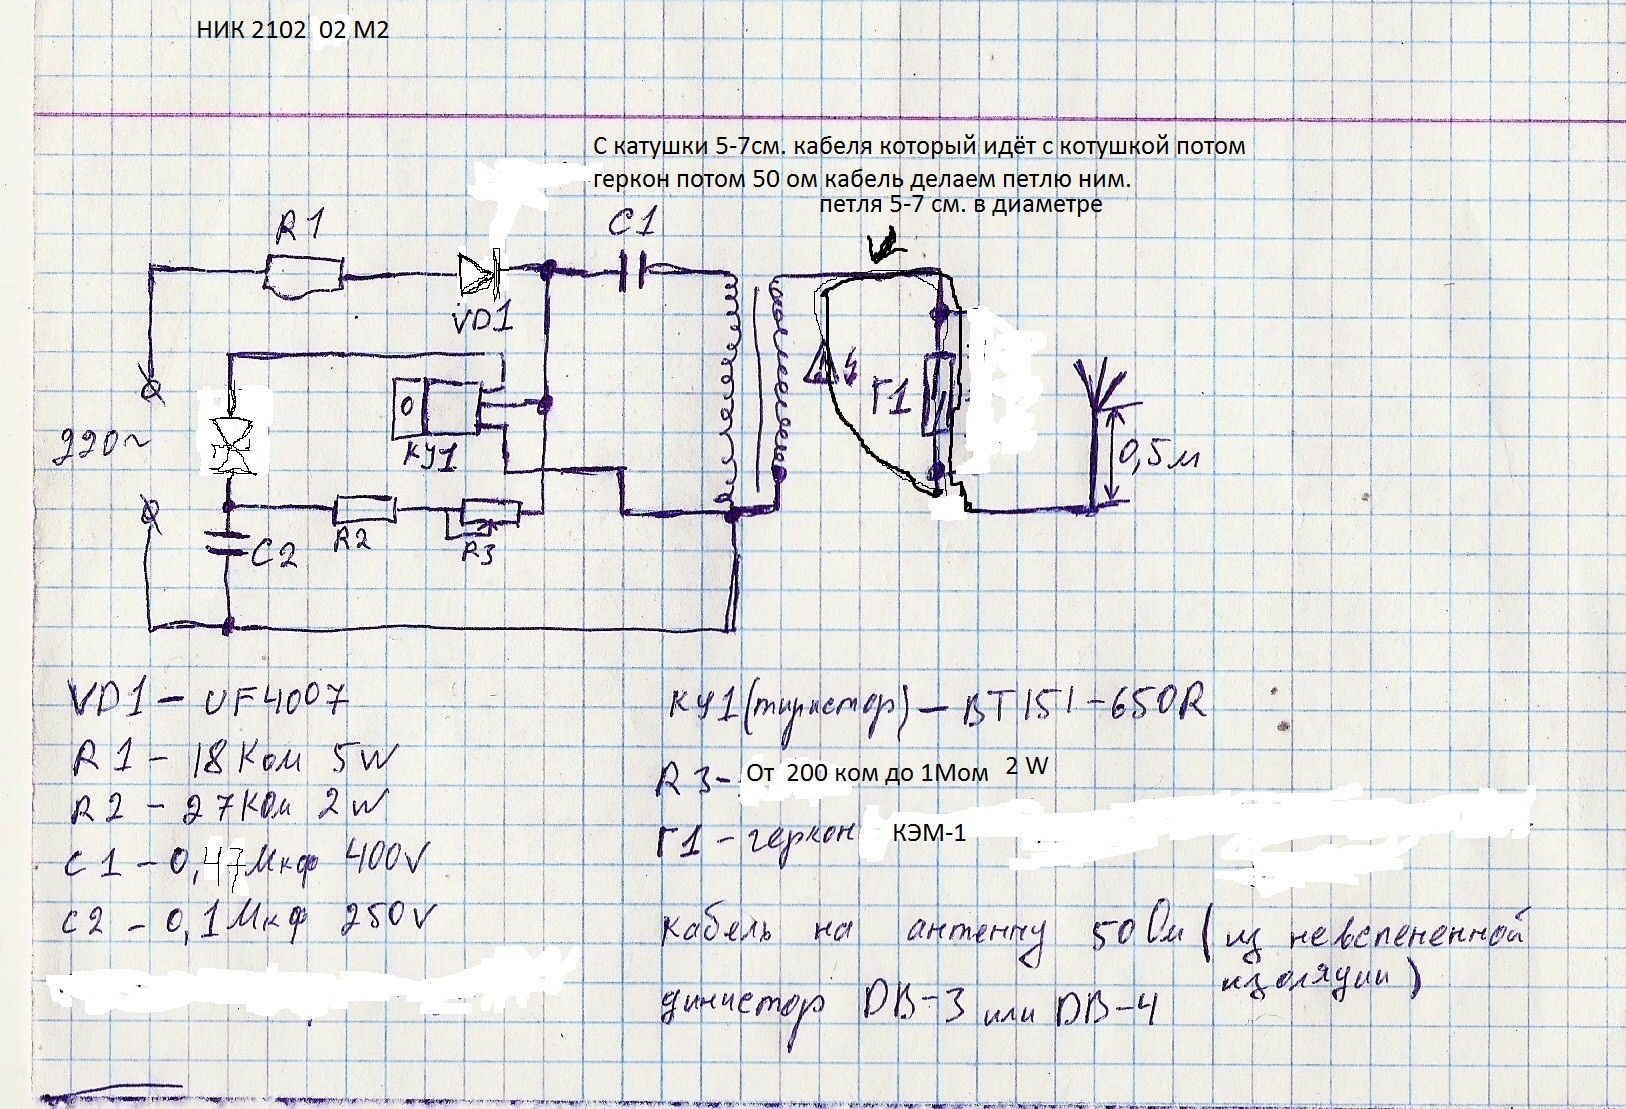 НИК 2102 02 М2
С катушки 5-7см. кабеля который идёт с котушкой потом
геркон потом 50 ом кабель делаем петлю ним.
петля 5-7 см. в диаметре
R1
C1
VD1
220~
КУ1
Г1
0,5м
R2
R3
C2
VD1 - UF4007
R1 - 18 Ком 5W
R2 - 27 Ком 2W
C1 - 0,47 Мкф 400V
C2 - 0,1 Мкф 250V
КУ1 (тиристор) - BT151-650R
R3- От 200 ком до 1Мом 2 W
Г1 - геркон КЭМ-1
Кабель на антенну 50 Ом (из невспененной
изоляции)
динистор DB-3 или DB-4